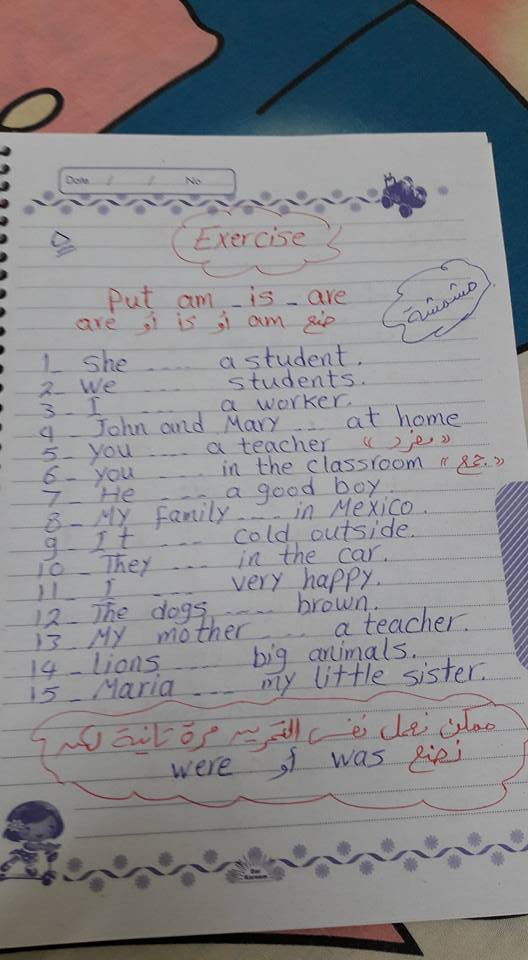 Date / / No
Exercise
Put am _ is _ are
ضع am أو is أو are
مشمشة
1_ She .... a student.
2_ We .... students.
3_ I .... a worker.
4_ John and Mary ... at home
5_ you .... a teacher « مفرد »
6_ you .... in the classroom « جمع »
7_ He .... a good boy
8_ My family .... in Mexico.
9_ It .... cold outside.
10_ They .... in the car.
11_ I .... very happy.
12_ The dogs .... brown.
13_ My mother .... a teacher.
14_ lions .... big animals.
15_ Maria .... my little sister.
ممكن نعمل نفس التمرين مرة تانية لكن
نضع was أو were